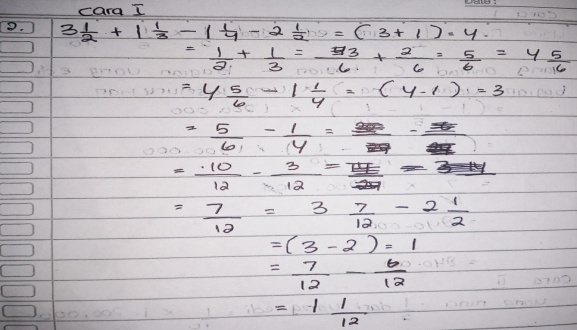 Cara I
2. 3 1/2 + 1 1/3 - 1 1/4 - 2 1/2 = (3+1) = 4.
= 1/2 + 1/3 = 3/6 + 2/6 = 5/6 = 4 5/6
= 4 5/6 - 1 1/4 = (4-1) = 3
= 5/6 - 1/4 =
= 10/12 - 3/12 =
= 7/12 = 3 7/12 - 2 1/2
= (3-2) = 1
= 7/12 - 6/12
= 1 1/12